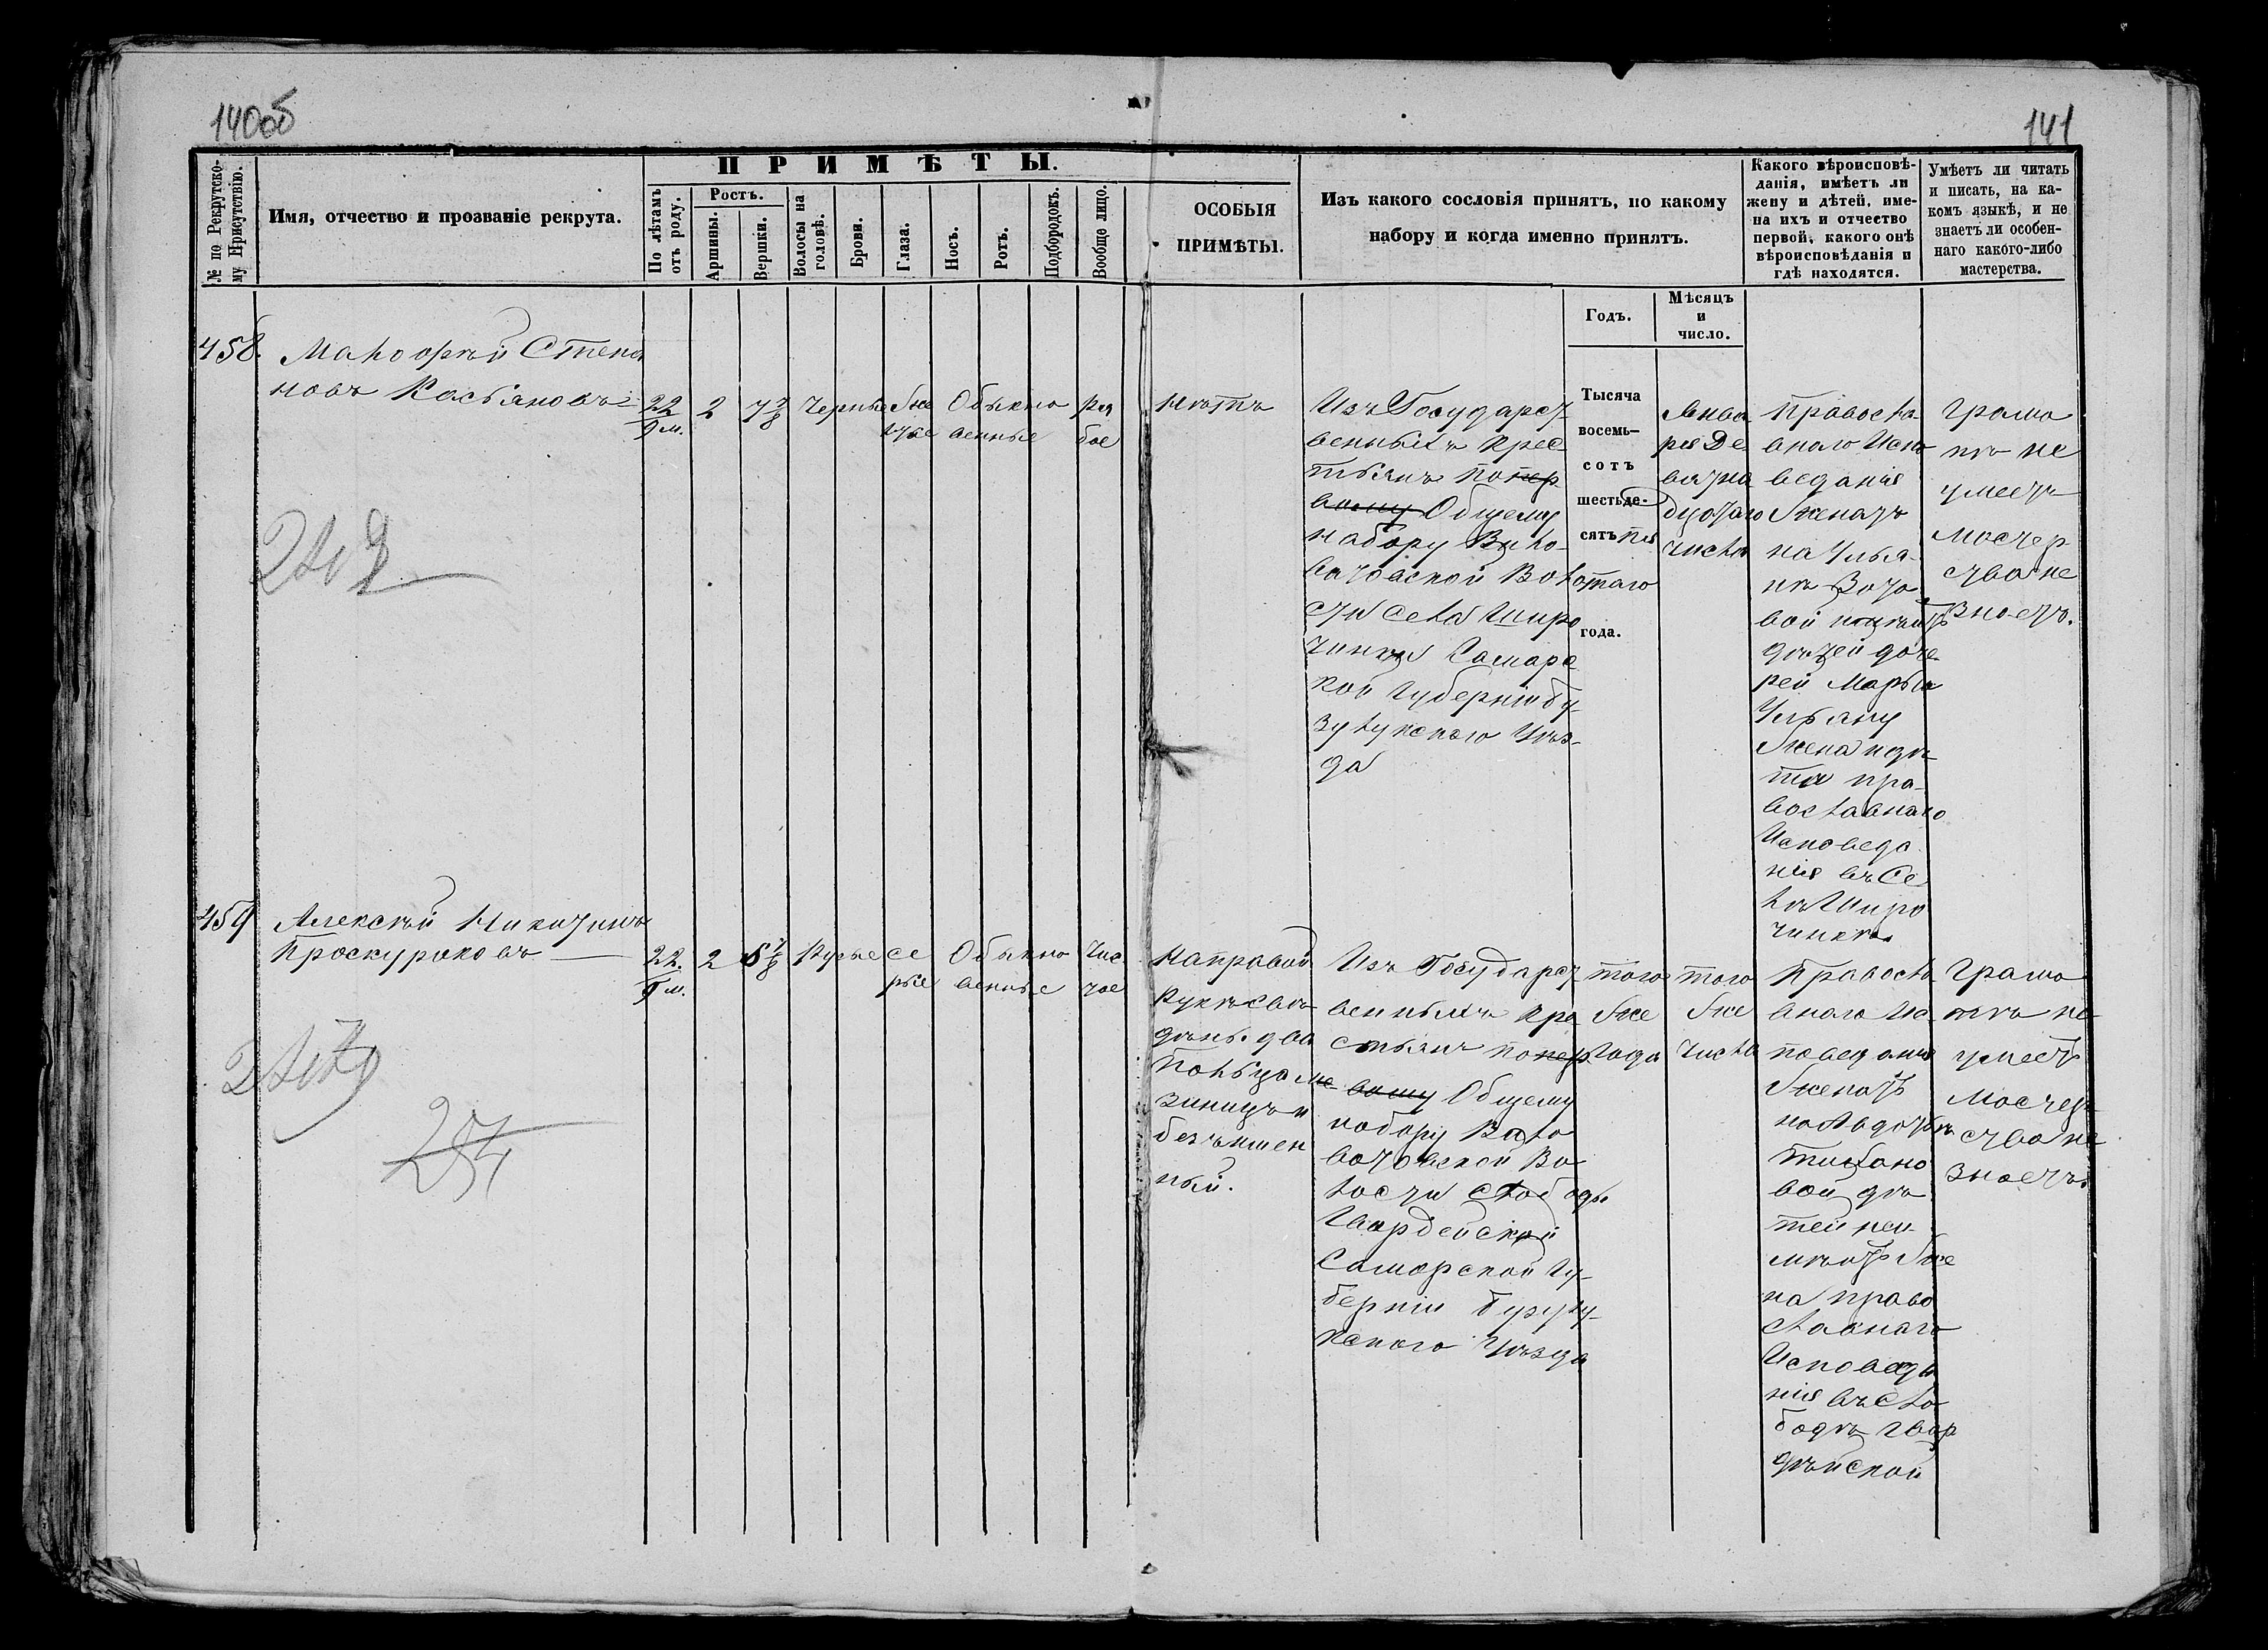 140об
141
ПРИМѢТЫ.
№ по Рекрутско-
му Присутствію.
Имя, отчество и прозваніе рекрута.
По лѣтамъ
отъ роду.
Ростъ.
Аршины.
Вершки.
Волосы на
головѣ.
Брови.
Глаза.
Носъ.
Ротъ.
Подбородокъ.
Вообще лицо.
ОСОБЫЯ
ПРИМѢТЫ.
Изъ какого сословія принятъ, по какому
набору и когда именно принятъ.
Какого вѣроисповѣ-
данія, имѣетъ ли
жену и дѣтей, име-
на ихъ и отчество
первой, какого онѣ
вѣроисповѣданія и
гдѣ находятся.
Умѣетъ ли читать
и писать, на ка-
комъ языкѣ, и не
знаетъ ли особен-
наго какого-либо
мастерства.
Годъ.
Мѣсяцъ
и
число.
458.
Степа
новъ Касьяновъ
22
9 м.
2
7 7/8
Черные
Обыкно
венные
ря
бое
нѣтъ
Изъ Государст
венныхъ Крес
тьянъ по пер
вому Общему
набору
Волости
села Широ
чинки Самарс
кой Губерніи Бу-
зулукского Уѣз-
да
Тысяча
восемь-
сотъ
шестьде-
сятъ пя
таго
года.
Янва
ря Де-
вятна
дцотаго
числа
Правосла
вного Испо
веданія
Женатъ
на Улья-
нѣ
вой имѣитъ
дѣтей доче
рей Марью
Ульяну
Жена и дѣ
ти пра-
вославнаго
Исповеда
нія въ Се
лѣ Широ
чинкѣ
Грамо
тѣ не
умеетъ
мостер
ства не
знаетъ.
459
Алексѣй Никитинъ
Проскуряковъ
22.
9 м.
2
5 7/8
Русые
се
рые
Обыкно
венные
Чис
тое
На правой
рукѣ
два
пальца ме
зинитъ и
безъимен
ный.
Изъ Государст
венныхъ Кре
стьянъ по пер
вому Общему
набору
Во
лости слободы
Гвардейской
Саморской Гу-
берніи Бузулу-
кского Уѣзда
того
Же
Года
того
Же
числа
Правосла
вного Ис
поведанія
Женатъ
вой дѣ
тей неи
мѣитъ Же
на право
славнаго
Исповеда
нія въ Сло
бодѣ Гвар
дѣйской
Грамо
тѣ не
умеетъ
мостер
ства не
знаетъ.